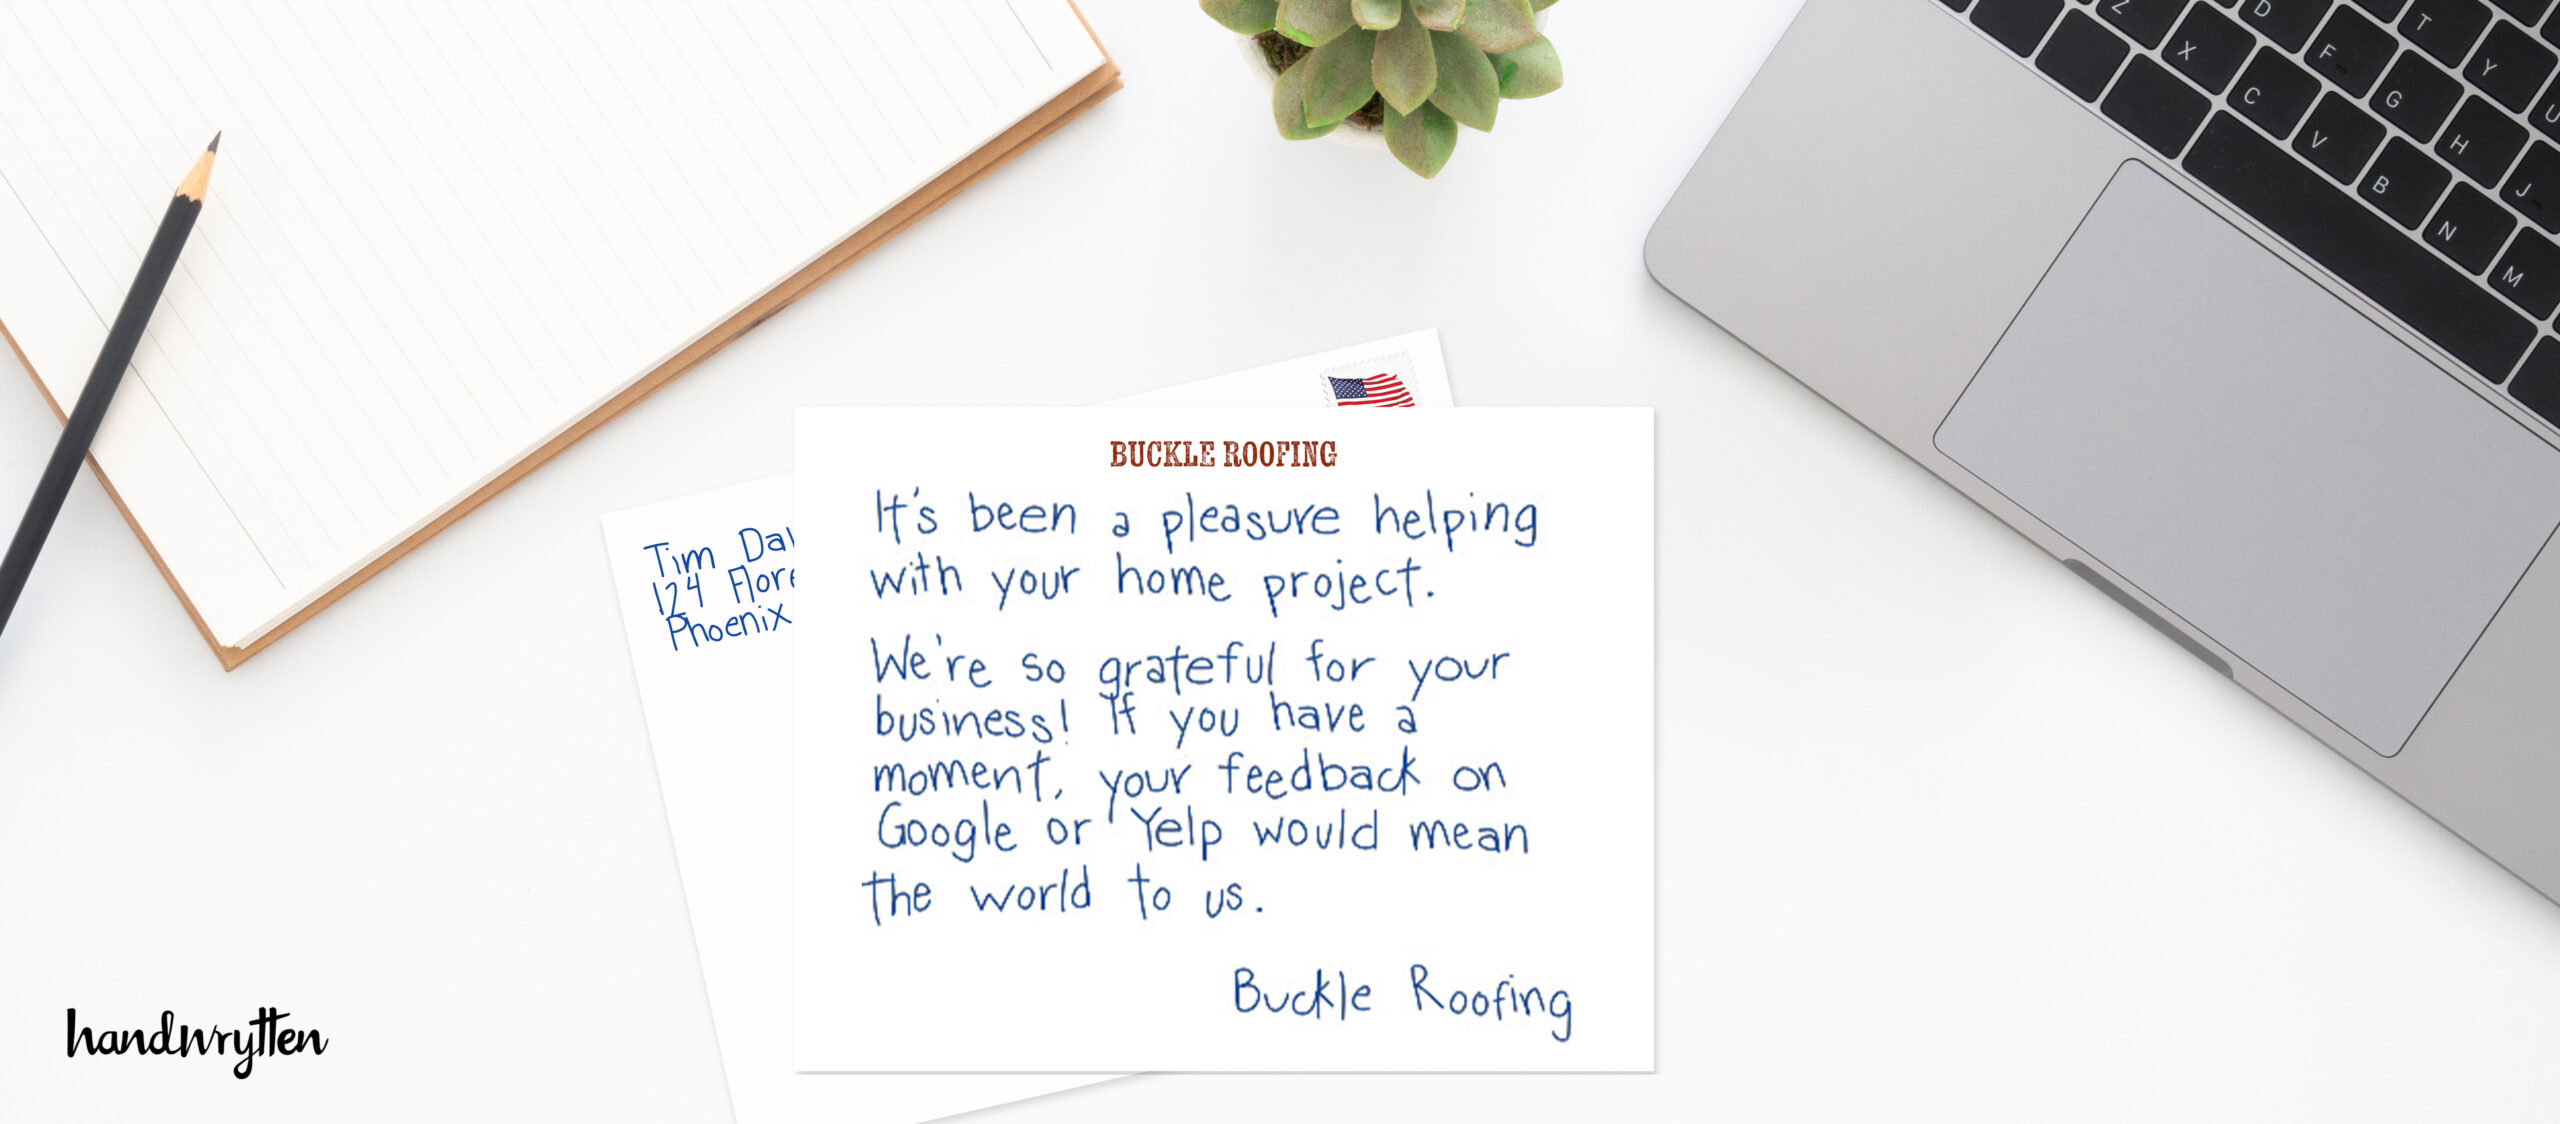 BUCKLE ROOFING
It's been a pleasure helping
with your home project.
We're so grateful for your
business! If you have a
moment, your feedback on
Google or Yelp would mean
the world to us.
Buckle Roofing
Tim
124
Phoenix
handwrytten
Z
D
T
X
F
Y
C
G
U
V
H
B
J
N
M